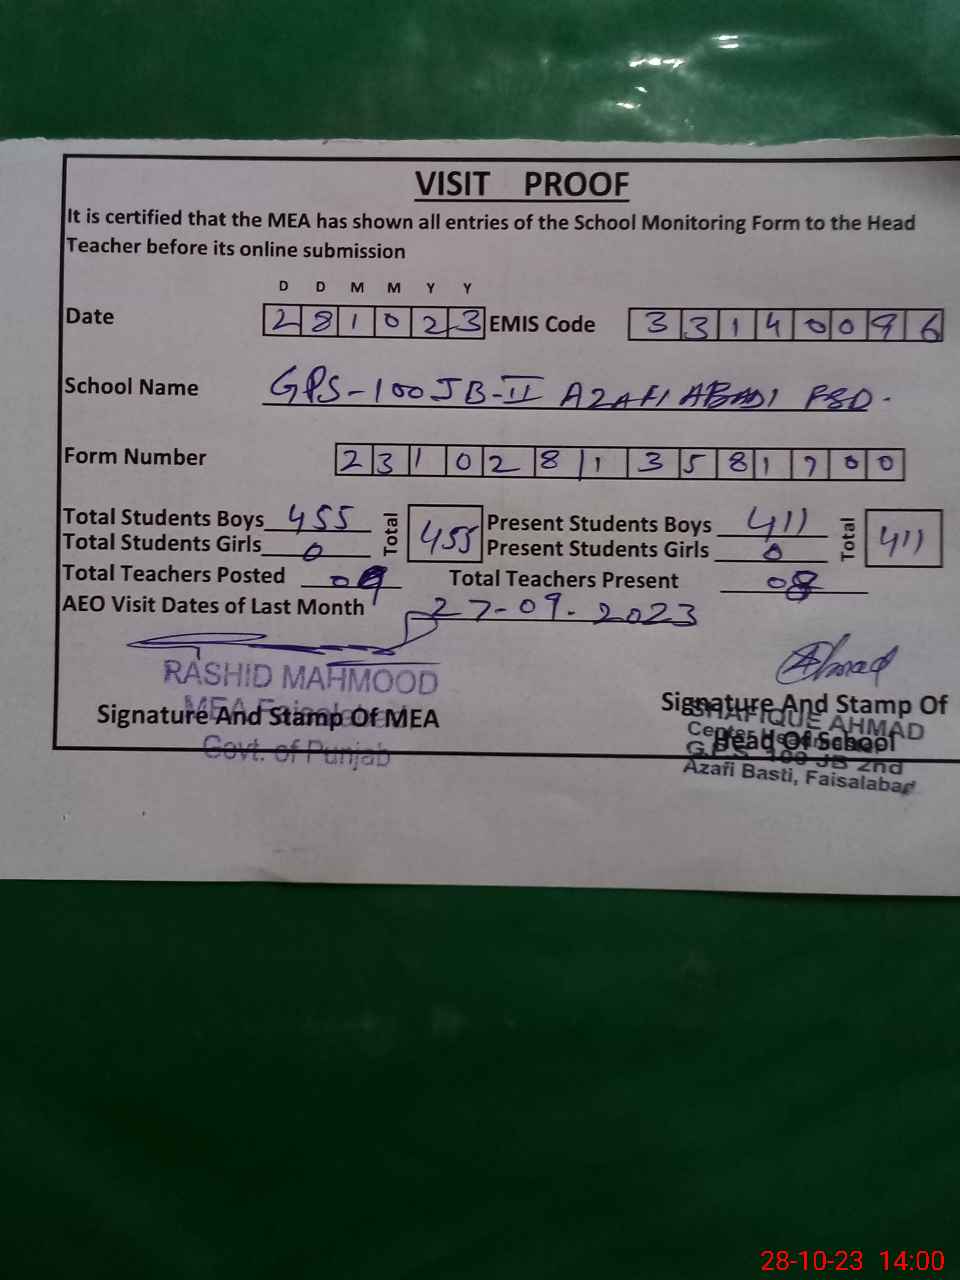 VISIT PROOF
It is certified that the MEA has shown all entries of the School Monitoring Form to the Head
Teacher before its online submission
D D M M Y Y
Date 281023 EMIS Code 33140096
School Name GPS-100 JB-II AZAFI ABADI FSD.
Form Number 23102813581700
Total Students Boys 455 Total 455 Present Students Boys 411 Total 411
Total Students Girls 0 Present Students Girls 0
Total Teachers Posted 09 Total Teachers Present 08
AEO Visit Dates of Last Month 27-09-2023
Ahmad
RASHID MAHMOOD
MEA Faisalabad
Signature And Stamp Of MEA
Govt. of Punjab
Signature And Stamp Of
Head Of School
SHAFIQUE AHMAD
G.P.S. 100 JB 2nd
Azafi Basti, Faisalabad
28-10-23 14:00